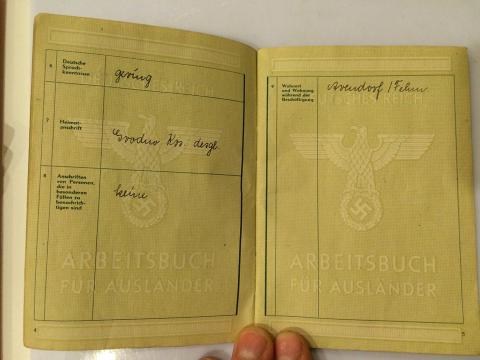 6
Deutsche
Sprach-
kenntnisse
gering
7
Heimat-
anschrift
Grodno Krs. desgl.
8
Anschriften
von Personen,
die in
besonderen
Fällen zu
benachrich-
tigen sind
keine
ARBEITSBUCH
FÜR AUSLÄNDER
4
9
Wohnort
und Wohnung
während der
Beschäftigung
Avendorf /Fehm.
DEUTSCHES REICH
ARBEITSBUCH
FÜR AUSLÄNDER
5